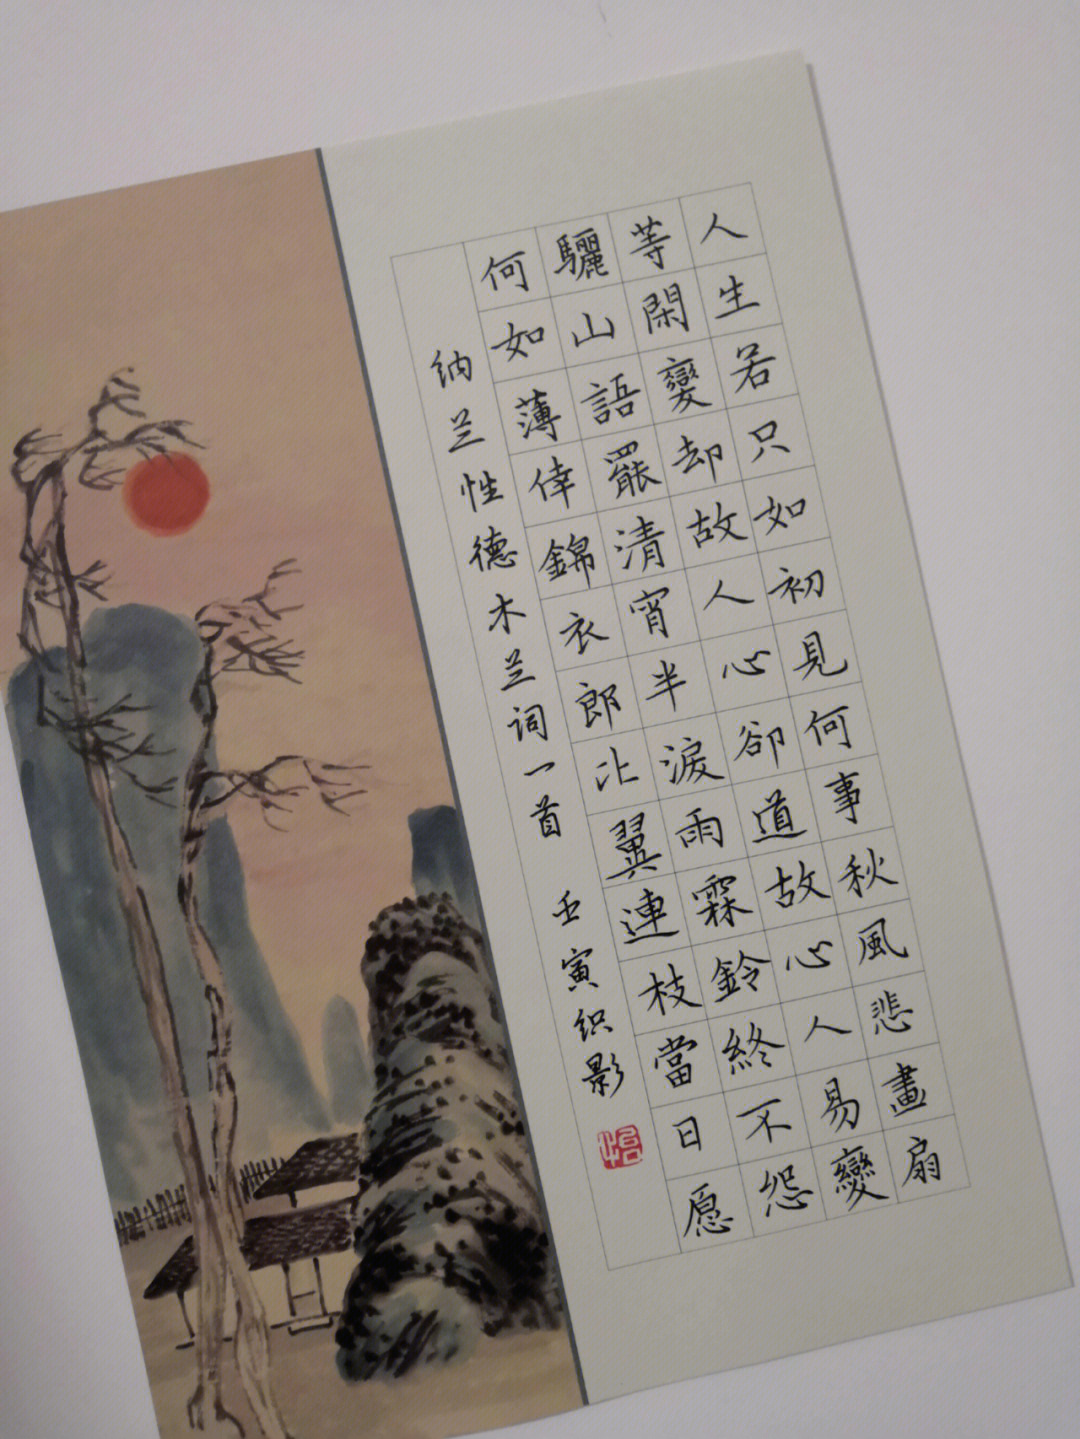 人生若只如初見何事秋風悲畫扇
等閑變却故人心卻道故心人易變
驪山語罷清宵半淚雨霖鈴終不怨
何如薄倖錦衣郎比翼連枝當日愿
纳兰性德木兰词一首 壬寅织影
怡